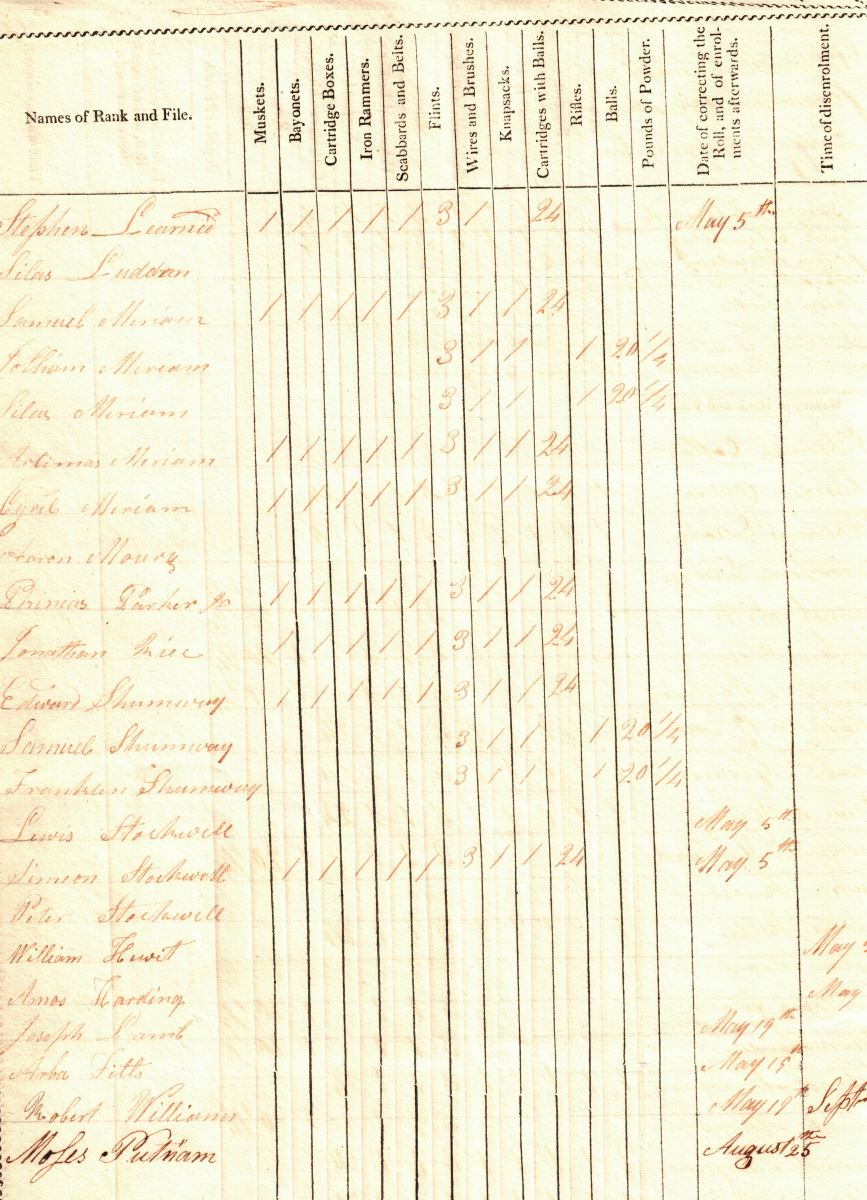 Names of Rank and File. Muskets. Bayonets. Cartridge Boxes. Iron Rammers. Scabbards and Belts. Flints. Wires and Brushes. Knapsacks. Cartridges with Balls. Rifles. Balls. Pounds of Powder. Date of correcting the Roll, and of enrolments afterwards. Time of disenrolment.
Stephen Learned 1 1 1 1 1 3 1 24 May 5th
Silas Luddan
Samuel Miriam 1 1 1 1 1 3 1 1 24
Miriam 3 1 1 1 20 1/4
Silas Miriam 3 1 1 1 20 1/4
Artimas Miriam 1 1 1 1 1 3 1 1 24
Cyril Miriam 1 1 1 1 1 3 1 1 24
Aaron
Phineas Parker Jr 1 1 1 1 1 3 1 1 24
Jonathan Rice 1 1 1 1 1 3 1 1 24
Edward Shumway 1 1 1 1 1 3 1 1 24
Samuel Shumway 3 1 1 1 20 1/4
Franklin Shumway 3 1 1 1 20 1/4
Lewis Stockwell May 5th
Simeon Stockwell 1 1 1 1 1 3 1 1 24 May 5th
Peter Stockwell
William Hewit May
Amos Harding May
Joseph Lamb May 19th
Arba Fitts May 19th
Robert Williams May 19th Sept
Moses Putnam August 25th